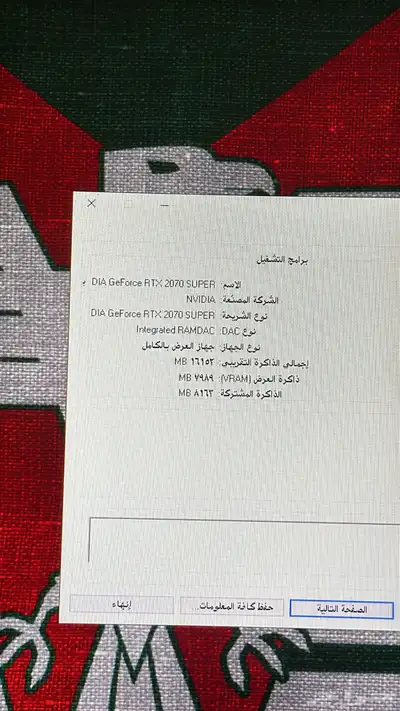 برامج التشغيل
الاسم: DIA GeForce RTX 2070 SUPER
الشركة المصنّعة: NVIDIA
نوع الشريحة: DIA GeForce RTX 2070 SUPER
نوع DAC: Integrated RAMDAC
نوع الجهاز: جهاز العرض بالكامل
إجمالي الذاكرة التقريبي: ١٦١٥٢ MB
ذاكرة العرض (VRAM): ٧٩٨٩ MB
الذاكرة المشتركة: ٨١٦٣ MB
الصفحة التالية
حفظ كافة المعلومات...
إنهاء